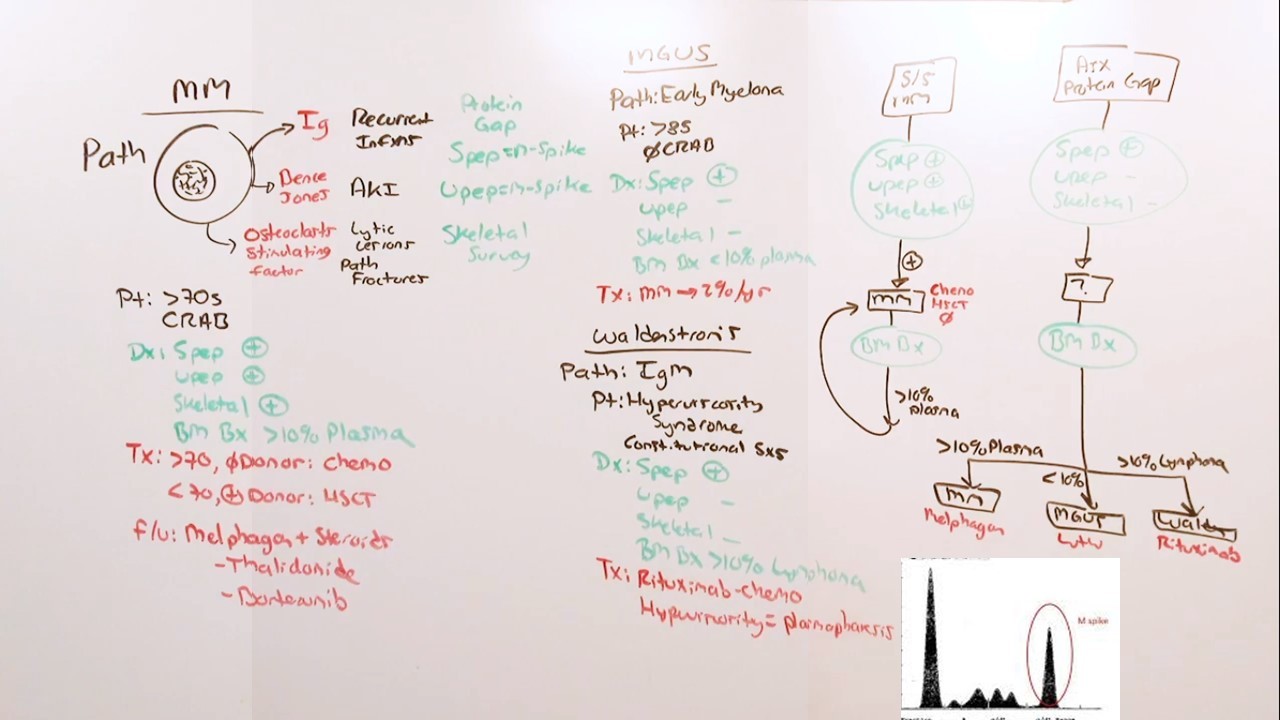 MM
Path
Ig
Recurrent
Infxns
Protein
Gap
Spep=M-Spike
Bence
Jones
AKI
Upep=M-Spike
Osteoclasts
Stimulating
factor
Lytic
Lesions
Path
Fractures
Skeletal
Survey
Pt: >70s
CRAB
Dx: Spep ⊕
Upep ⊕
Skeletal ⊕
Bm Bx >10% Plasma
Tx: >70, ØDonor: Chemo
<70, ⊕Donor: HSCT
f/u: Melphagan + Steroids
-Thalidonide
MGUS
Path: Early Myeloma
Pt: >85
ØCRAB
Dx: Spep ⊕
Upep -
Skeletal -
Bm Bx <10% plasma
Tx: MM → 2%/yr
Path: IgM
Pt: Hyperviscosity
Syndrome
Constitutional Sxs
Dx: Spep ⊕
Upep -
Skeletal -
Bm Bx >10% Lymphoma
Tx: Rituximab-chemo
S/S
MM
Spep ⊕
Upep ⊕
Skeletal ⊕
⊕
MM
Chemo
HSCT
Ø
Bm Bx
>10%
plasma
Protein Gap
Spep ⊕
Upep -
Skeletal -
?
Bm Bx
>10% Plasma
<10%
>10% Lymphoma
MM
Melphagan
MGUS
Rituximab
M spike